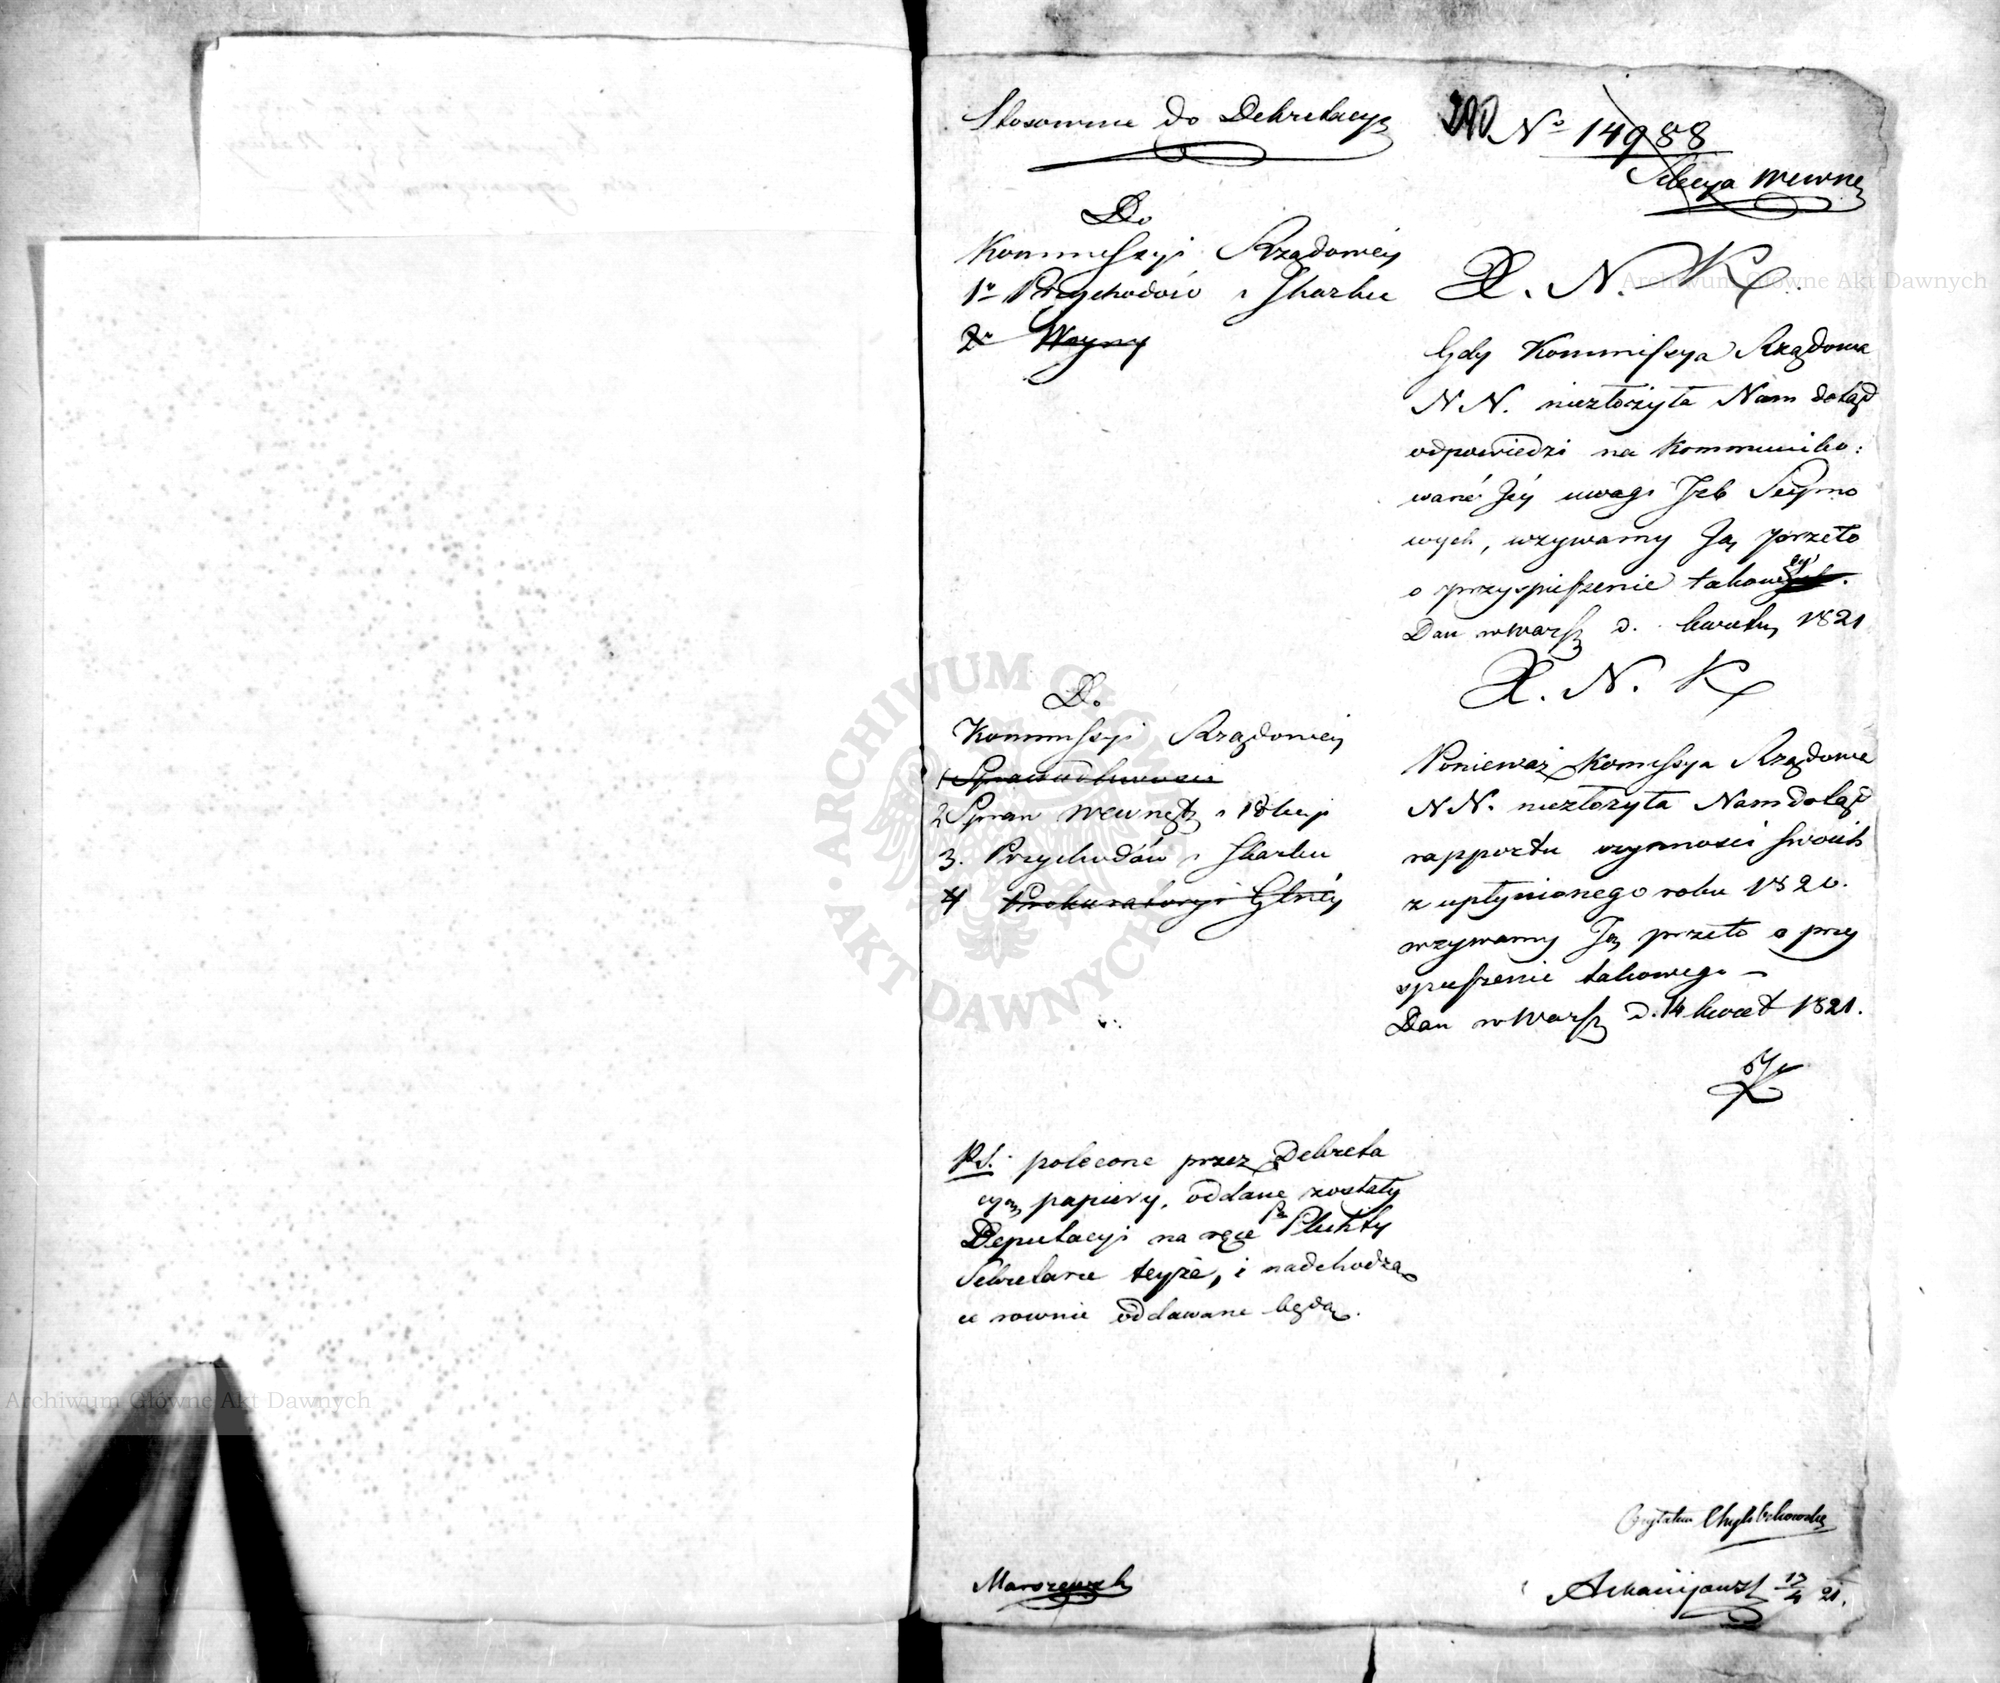 Stosownie do Dekretacyi
290 No 14988
Sekcya Wewnę
Do
Kommissyi Rządowéy
1o Przychodów i Skarbu
2o Woyny
X. N. K.
Gdy Kommissya Rządowa
N N. niezłożyła Nam dotąd
odpowiedzi na kommuniko:
wané Jéy uwagi Izb Seymo
wych, wzywamy Ją przeto
o przyspieszenie takowéy.
Dan w Warsz d. kwietn 1821
Do
Kommissyi Rządowéy
1 Sprawiedliwości
2 Spraw Wewnętz i Policyi
3. Przychodów i Skarbu
4 Prokuratoryi Glnéy
X. N. K
Ponieważ Komissya Rządowa
N N. niezłożyła Nam dotąd
rapportu czynności swoich
z upłynionego roku 1820.
wzywamy Ją przeto o przy
spieszenie takowego –
Dan w Warsz d. 14 kwiet 1821.
PS. polecone przez Dekreta
cyą papiery, oddane zostały
Deputacyi na ręce Pa Plichty
Sekretarza teyże, i nadchodzą
ce rownie oddawane będą.
Czytałem
Marszewsk
17/4 21.
Archiwum Główne Akt Dawnych
ARCHIWUM GŁÓWNE AKT DAWNYCH
Archiwum Główne Akt Dawnych